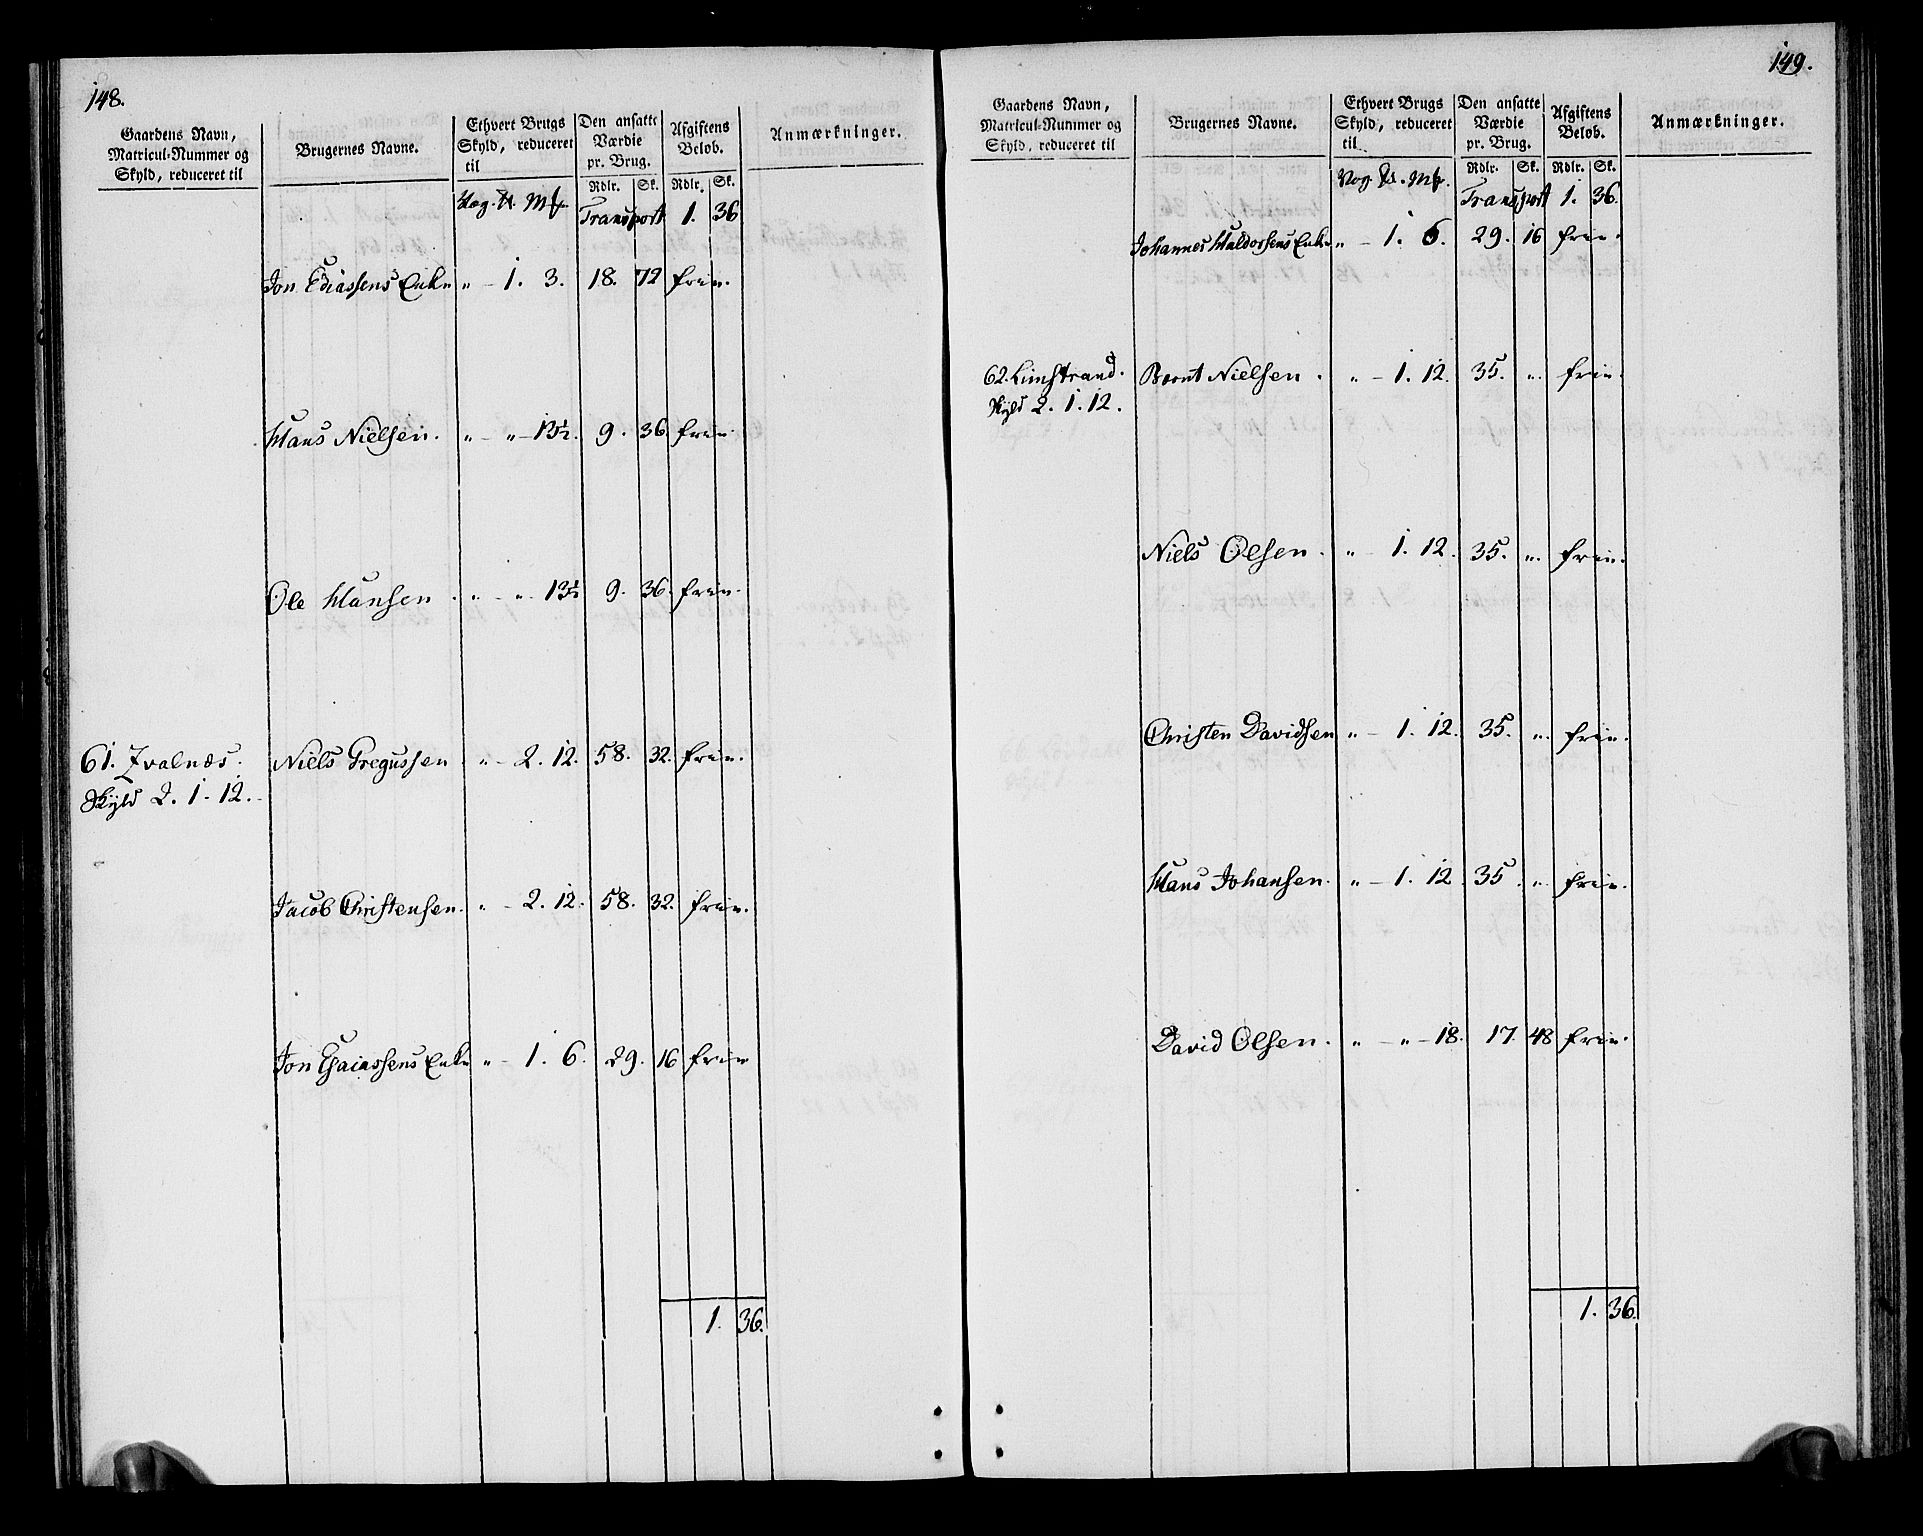 148.
Gaardens Navn, Matricul-Nummer og Skyld, reduceret til | Brugernes Navne. | Ethvert Brugs Skyld, reduceret til | Den ansatte Værdie pr. Brug. | Afgiftens Beløb. | Anmærkninger.
Rdlr. | Sk. | Rdlr. | Sk.
Transport | 1. | 36
Jon Ediassens Enke | " - 1. 3. | 18. | 72 | frie.
Hans Nielsen. | " - " - 13½. | 9. | 36. | frie.
Ole Hansen. | " - " - 13½ | 9. | 36. | frie.
61. Ivalnæs. | Niels Gregussen | " - 2. 12. | 58. | 32. | frie.
Skyld 2. 1. 12.
Jacob Christensen. | " - 2. 12. | 58. | 32. | frie.
Jon Esaiassens Enke | " - 1. 6. | 29. | 16 | frie
1. | 36.
149.
Gaardens Navn, Matricul-Nummer og Skyld, reduceret til | Brugernes Navne. | Ethvert Brugs Skyld, reduceret til | Den ansatte Værdie pr. Brug. | Afgiftens Beløb. | Anmærkninger.
Rdlr. | Sk. | Rdlr. | Sk.
Transport | 1. | 36.
Johannes Haldorsens Enke | " - 1. 6. | 29. | 16 | frie.
62. Limstrand. | Bernt Nielsen. | " - 1. 12. | 35. | ". | frie.
Skyld 2. 1. 12.
Niels Olsen. | " - 1. 12. | 35. | ". | frie.
Christen Davidsen | " - 1. 12. | 35. | ". | frie.
Hans Johansen. | " - 1. 12. | 35. | ". | frie.
David Olsen. | " - " - 18. | 17. | 48 | frie.
1. | 36.